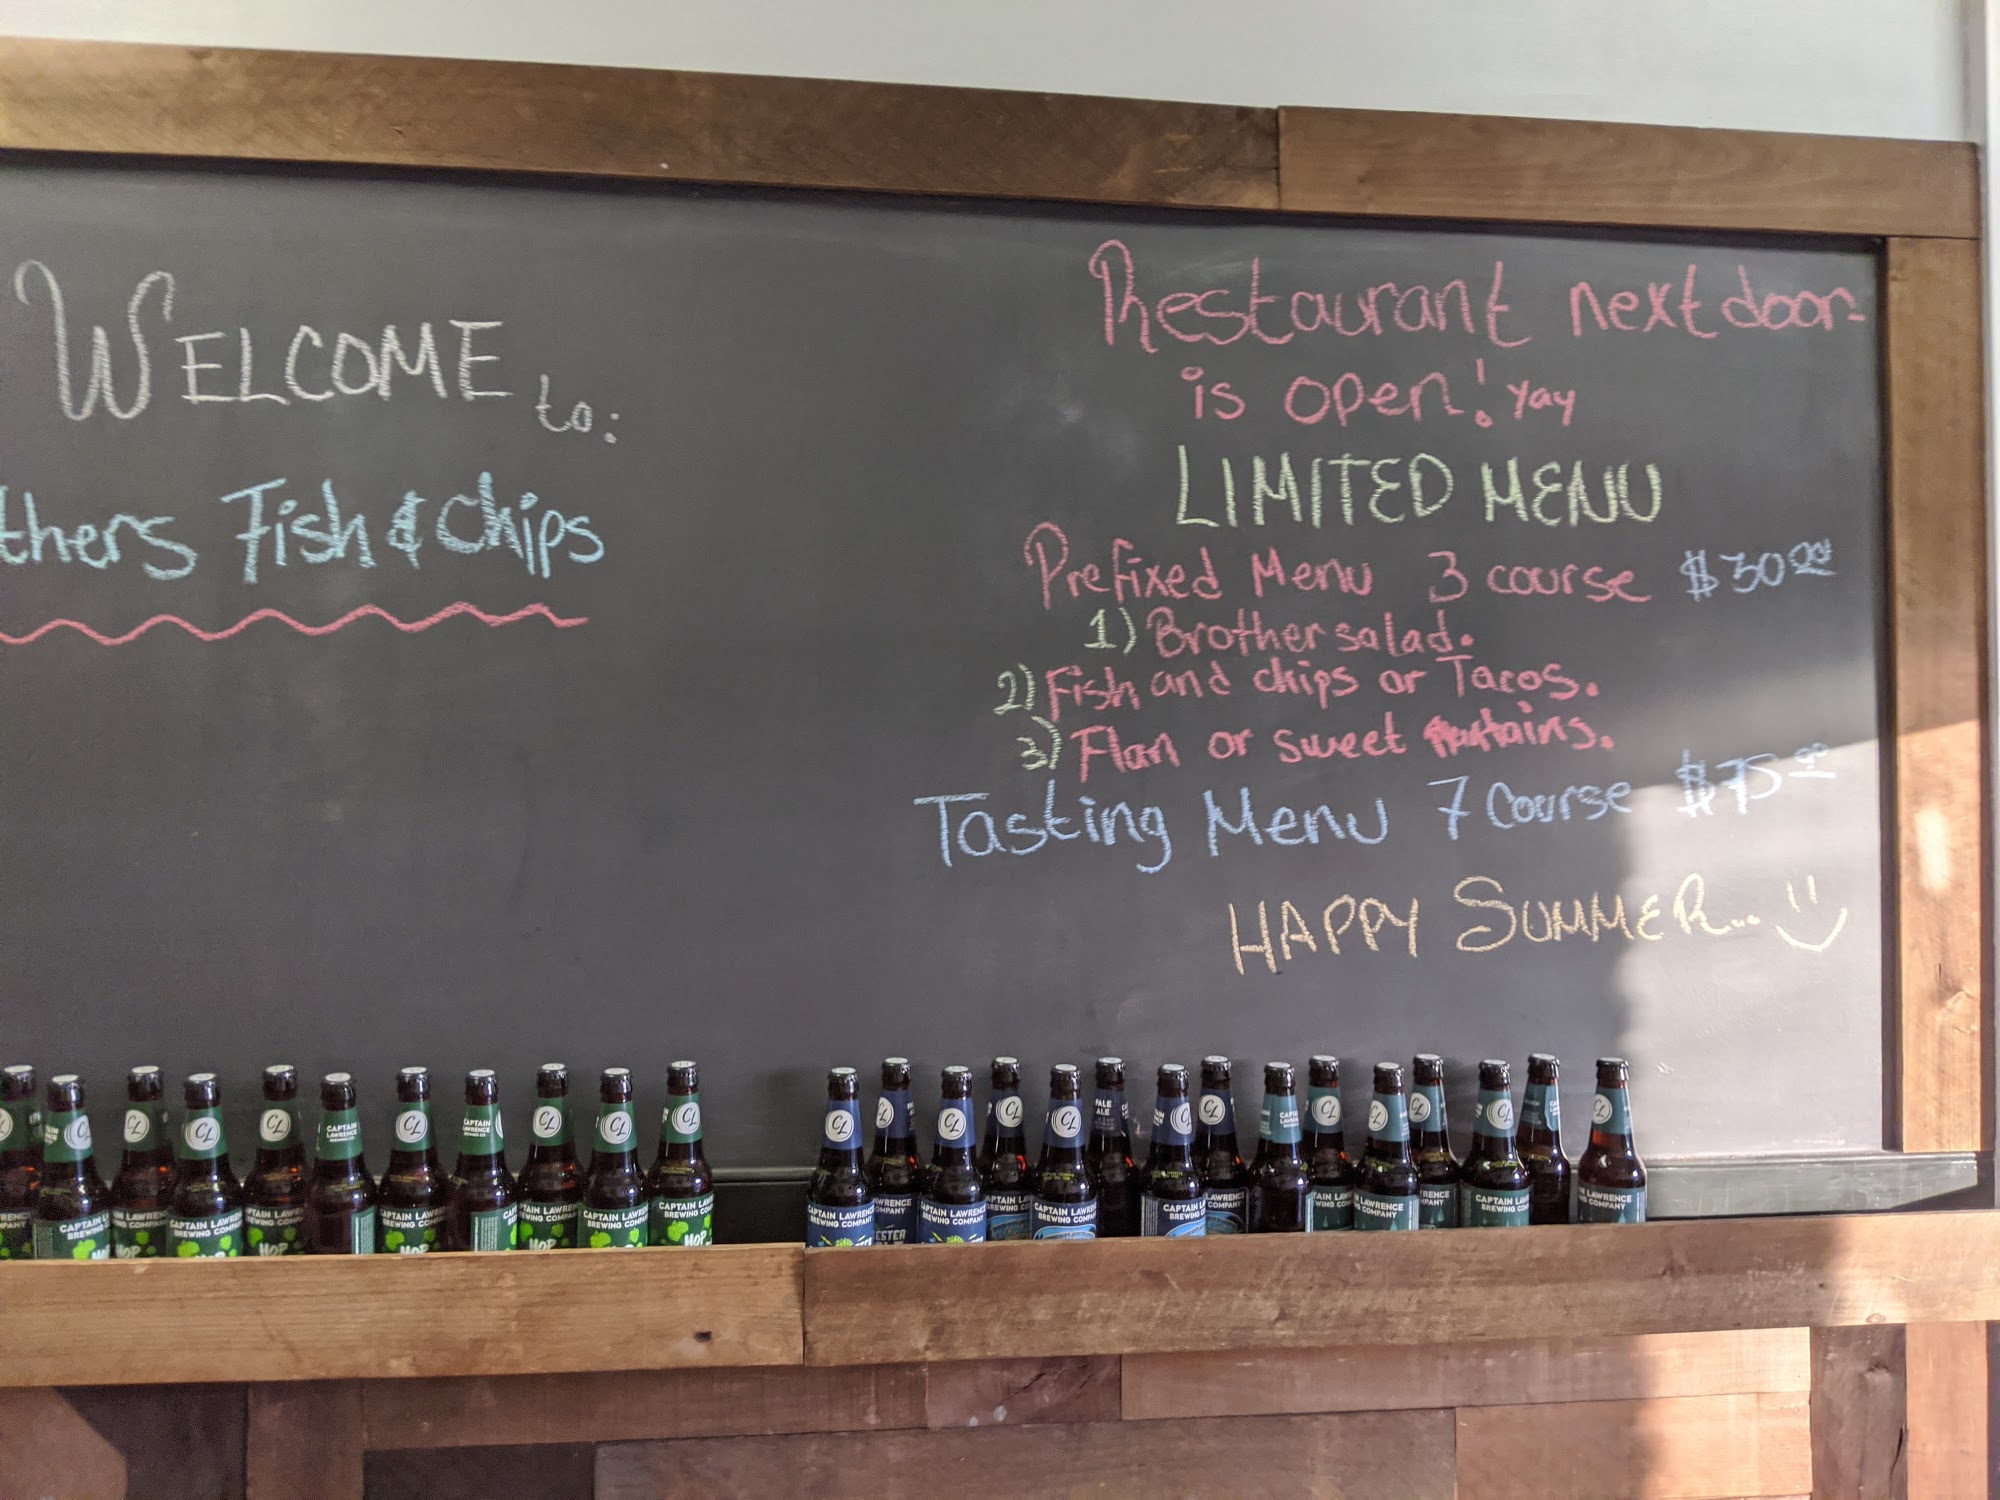 WELCOME to:
thers Fish & Chips
Restaurant next door-
is open! Yay
LIMITED MENU
Prefixed Menu 3 course $30.00
1) Brother salad.
2) Fish and chips or Tacos.
3) Flan or sweet
Tasting Menu 7 Course $75.00
HAPPY SUMMER...
CL
CAPTAIN LAWRENCE
BREWING COMPANY
HOP
PALE
ALE
CAPTAIN LAWRENCE
BREWING COMPANY